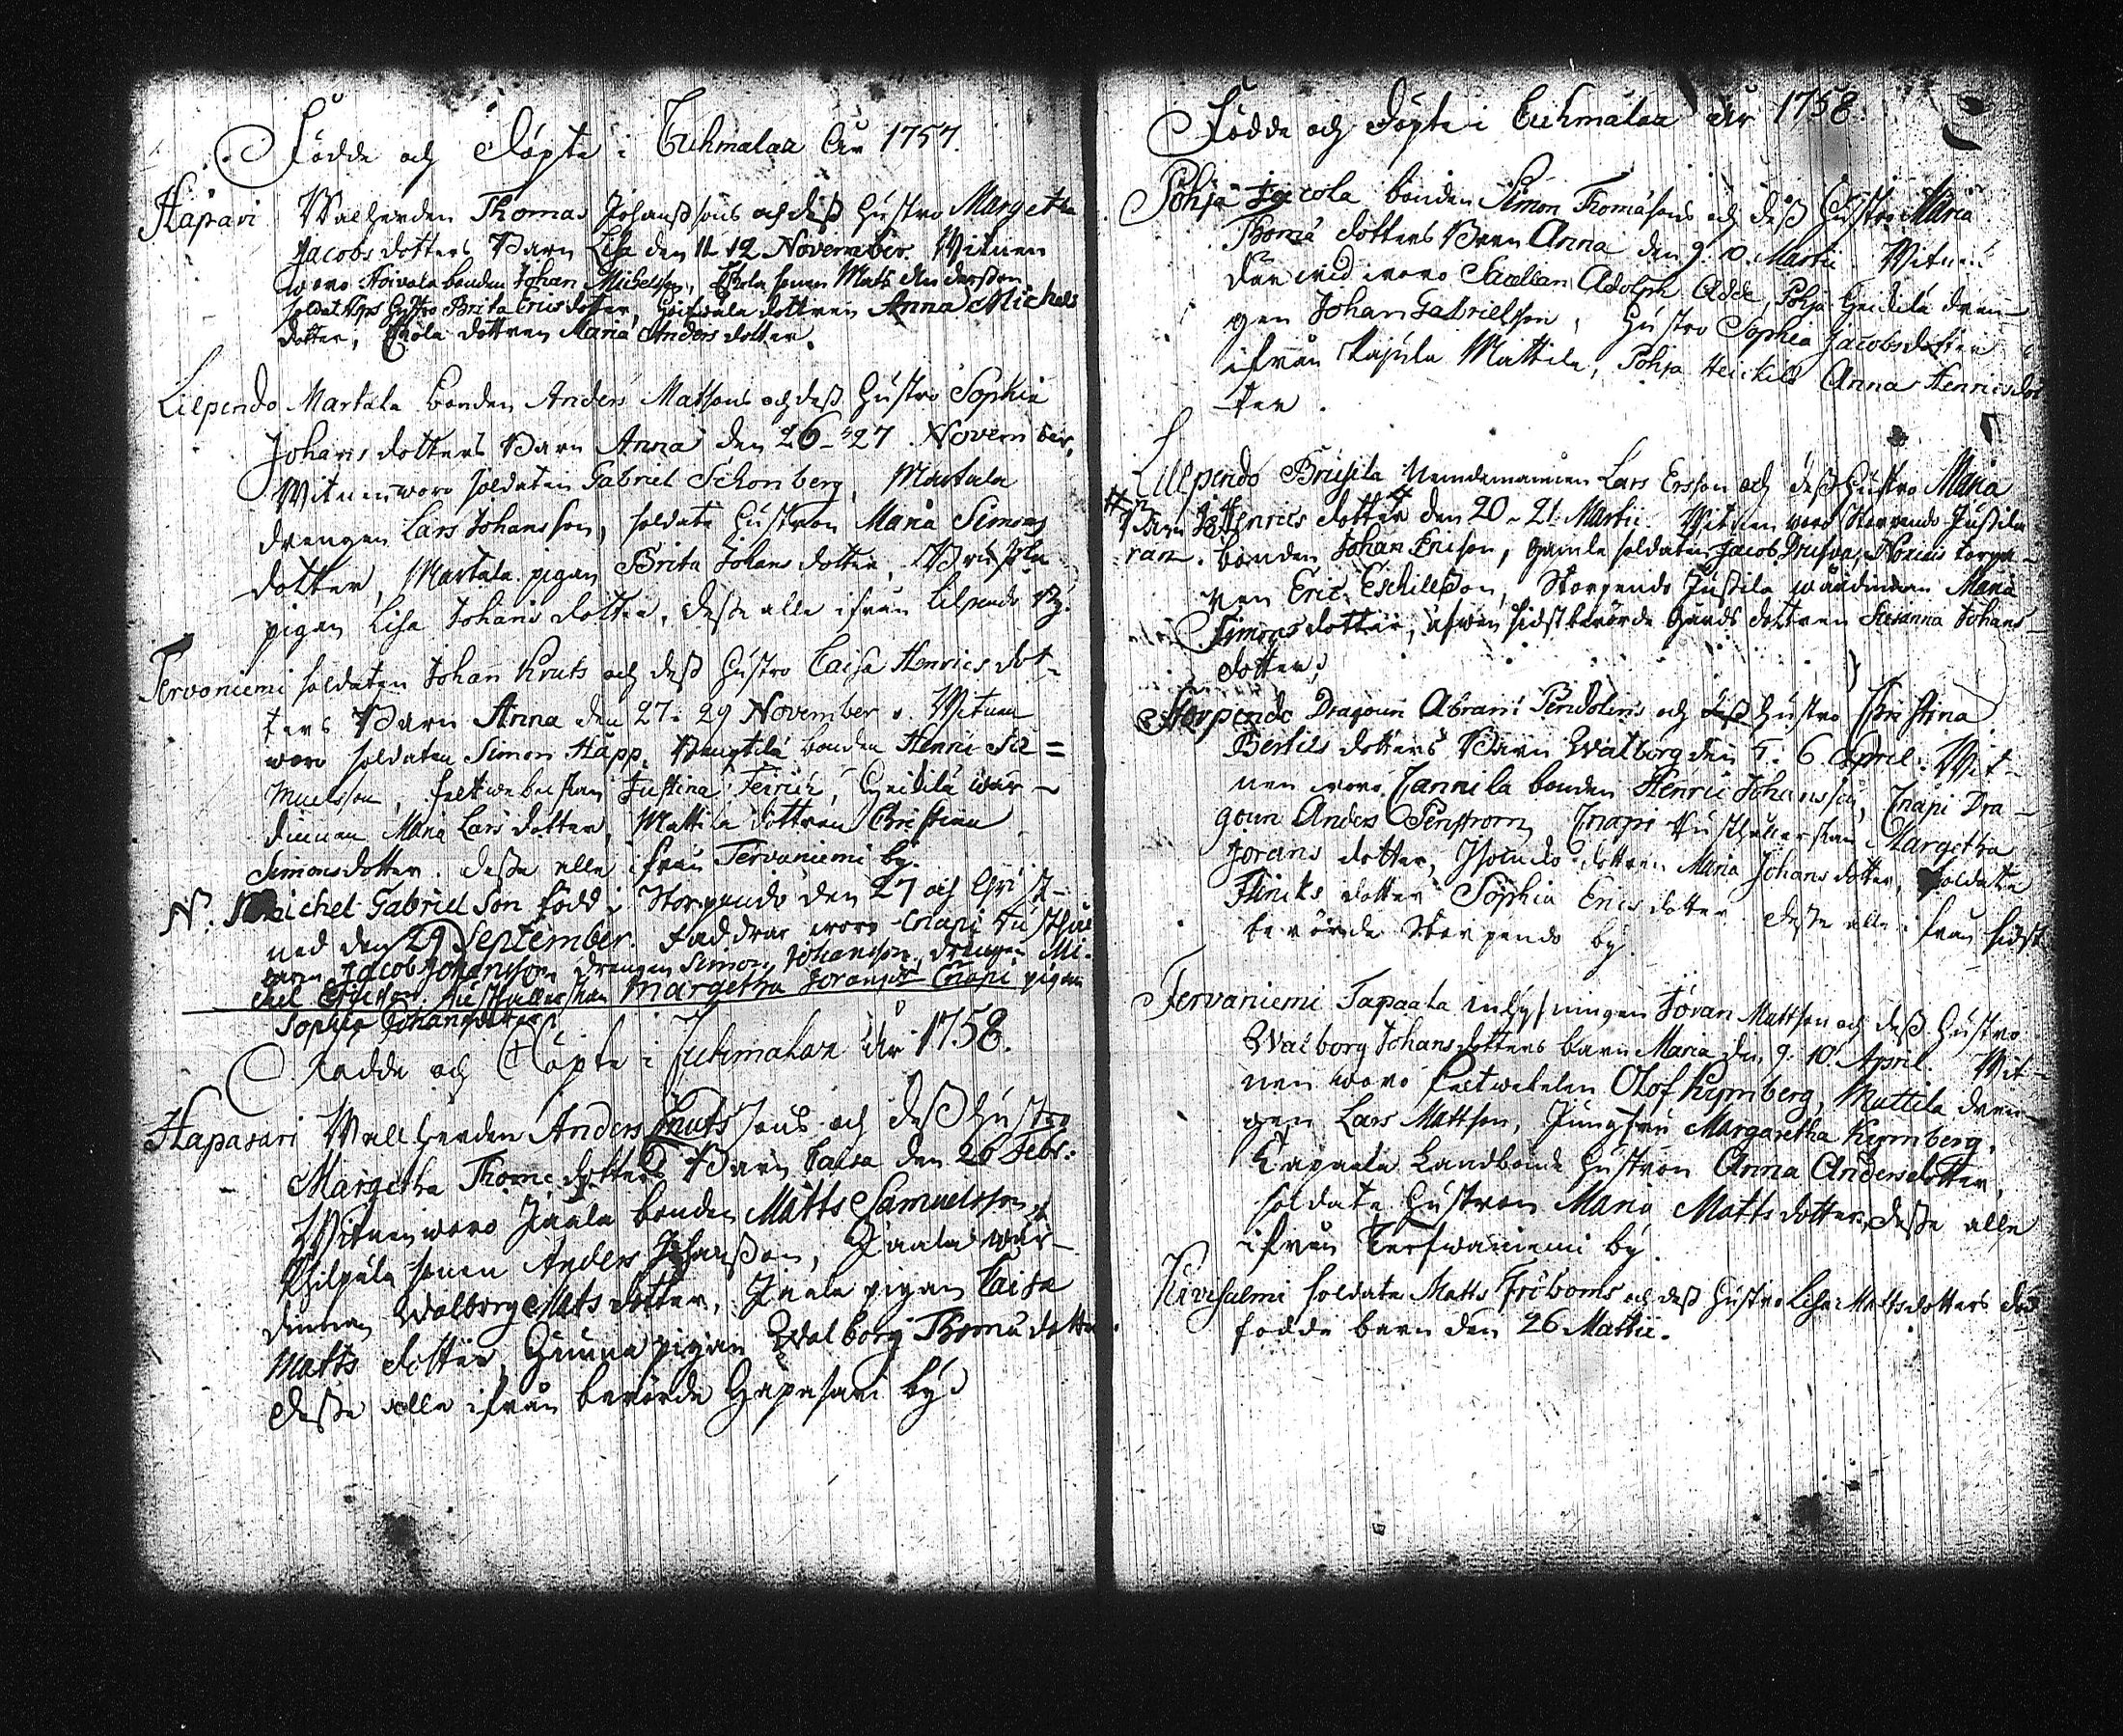 Födde och Döpte i Tuhmalax År 1757.
Hapasari Wallherden Thomas Johanssons och dess hustro Margeta
Jacobs dotters Barn Lisa den 11. 12 November. Witnen
woro Hoivala bonden Johan Michelsson, sonen Matts Andersson
soldat hustro Brita Erics dotter, dottren Anna Michels
dotter, dottren Maria Anders dotter.
Lilpendo Martala bonden Anders Matssons och dess hustro Sophia
Johans dotters Barn Anna den 26-27 November.
Witnen woro soldaten Gabriel Schonberg, Martala
drengen Lars Johansson, soldats hustron Maria Simons
dotter, Martala pigan Brita Johans dotter,
pigan Lisa Johans dotter, desse alle ifrån Lilpendo By.
Tervaniemi soldaten Johan Kruts och dess hustro Caisa Henrics dot-
ters Barn Anna den 27. 29 November. Witnen
woro soldaten Simon Häpp, bonden Henric Sa=
muelsson, feltwebelskan Justina, Heickilä wär-
dinnan Maria Lars dotter, Mattila dottren Christina
Simons dotter. desse alle ifrån Tervaniemi by.
N: Michel Gabriel Son född i Storpendo den 27 och Christ-
nad den 29 September. Faddrar woro Cnapi Rusthål-
laren Jacob Johansson drengen Simon Johansson, drengen Mi-
chel Ericsson, Rusthållerskan Margetha Joransdr Cnapi pigan
Sophia Johansdotter
Födde och Döpte i Tuhmalax År 1758.
Hapasari Wallherden Anders Knutssons och dess hustro
Margetha Thome dotters Barn Caisa den 26 Febr:
Witnen woro Jaala bonden Matts Samuelsson,
sonen Anders Johansson, Jaala wär-
dinnan Walborg Mats dotter, Jaala pigan Caisa
Matts dotter, pigan Walborg Thomæ dotter.
desse alle ifrån berörde Hapasari by.
Födde och Döpte i Tuhmalax År 1758.
Pohja Jacola bonden Simon Thomasons och dess hustro Maria
Thomæ dotters Barn Anna den 9. 10. Martii. Witnen
der wid woro Adolph Adde, Pohja Heickilä dren-
gen Johan Gabrielsson, hustro Sophia Jacobs dotter
ifrån Mattila, Pohja Heickilä Anna Henricsdot
ter.
Lillpendo Brusila Nemdemannen Lars Ersson och dess hustro Maria
Henrics dotter den 20-21 Martii. Witnen woro Storpendo Jussila
bonden Johan Ericson, gamle soldaten Jacob, torpa-
ren Eric Eschillsson, Storpendo Jussila wärdinnan Maria
Simons dotter, äfwen sidstberörde Gårds dottren Susanna Johans-
dotter.
Storpendo Dragoun Abram Pendolins och dess hustro Christina
Bertils dotters Barn Walborg den 5. 6 April. Wit-
nen woro Tannila bonden Henric Johansson, Cnapi Dra-
goun Anders Penstrom, Cnapi Rusthållerskan Margetha
Jorans dotter, dottren Maria Johans dotter, soldaten
Flincks dotter Sophia Erics dotter. desse alle ifrån sidst
berörde Storpendo by.
Tervaniemi Tapaala inhysningen Jöran Mattson och dess hustro
Walborg Johans dotters barn Maria den 9. 10. April. Wit-
nen woro Feltwebelen Olof Kymberg, Mattila dren-
gen Lars Mattson, Jungfru Margaretha Kymberg,
Tapaala Landbonde hustron Anna Anders dotter,
soldats hustron Maria Matts dotter, desse alle
ifrån Terfwaniemi by.
Kivisalmi soldaten Matts Fröboms och dess hustro Lisa Mattsdotters död
födde barn den 26 Martii.